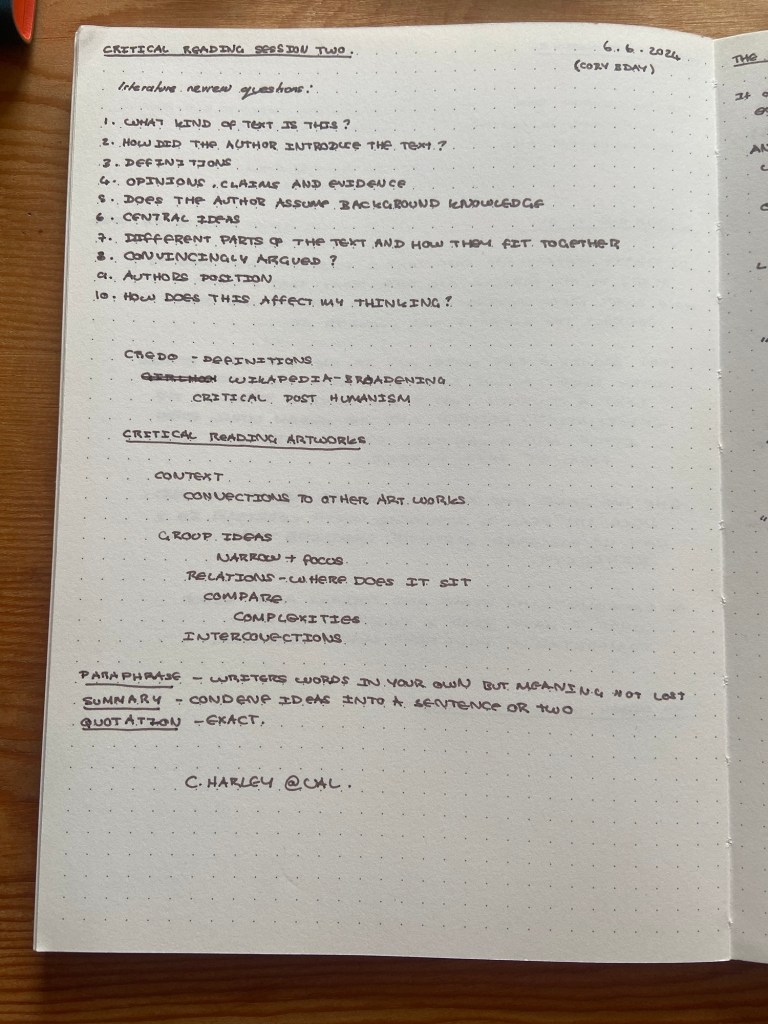 CRITICAL READING SESSION TWO. 6.6.2024
(CORY BDAY)
literature review questions:
1. WHAT KIND OF TEXT IS THIS?
2. HOW DID THE AUTHOR INTRODUCE THE TEXT?
3. DEFINITIONS
4. OPINIONS, CLAIMS AND EVIDENCE
5. DOES THE AUTHOR ASSUME BACKGROUND KNOWLEDGE
6. CENTRAL IDEAS
7. DIFFERENT PARTS OF THE TEXT AND HOW THEY FIT TOGETHER
8. CONVINCINGLY ARGUED?
9. AUTHORS POSITION
10. HOW DOES THIS AFFECT MY THINKING?
CREDO - DEFINITIONS
WIKAPEDIA - BROADENING
CRITICAL POST HUMANISM
CRITICAL READING ARTWORKS
CONTEXT
CONNECTIONS TO OTHER ART WORKS
GROUP IDEAS
NARROW + FOCUS
RELATIONS - WHERE DOES IT SIT
COMPARE
COMPLEXITIES
INTERCONECTIONS
PARAPHRASE - WRITERS WORDS IN YOUR OWN BUT MEANING NOT LOST
SUMMARY - CONDENE IDEAS INTO A SENTENCE OR TWO
QUOTATION - EXACT.
C. HARLEY @UAL.
THE